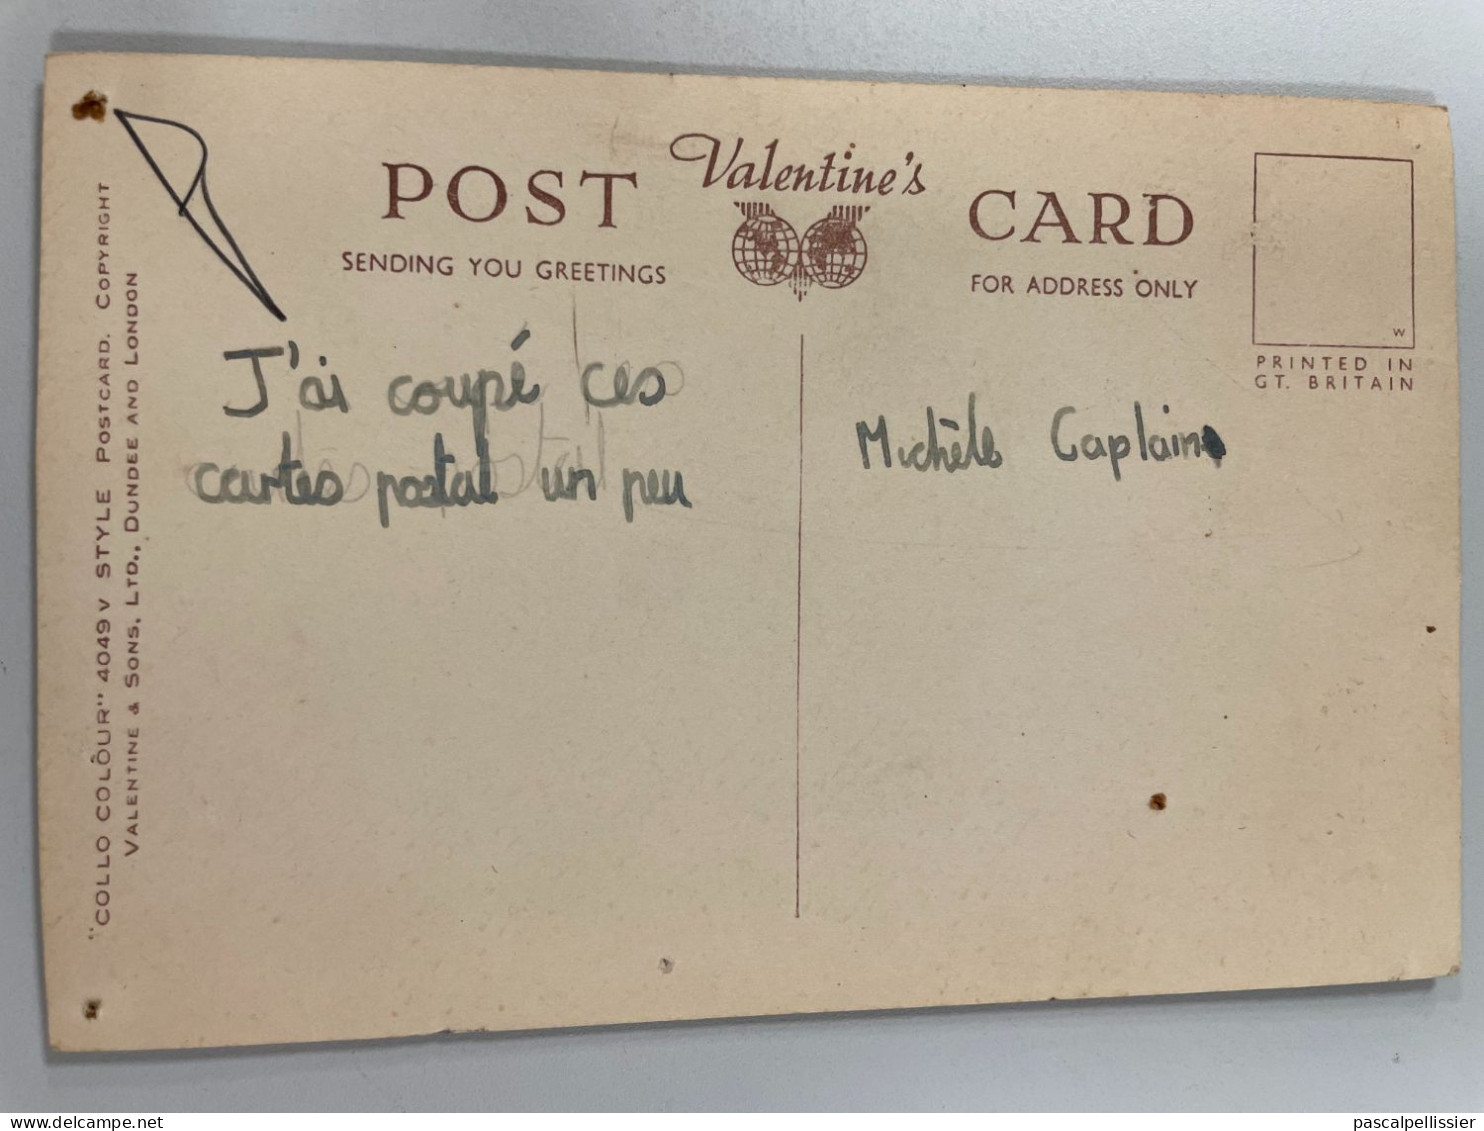 POST Valentine's CARD
SENDING YOU GREETINGS
FOR ADDRESS ONLY
W
PRINTED IN
GT. BRITAIN
J'ai coupé ces
cartes postal un peu
Michèle Caplain
"COLLO COLOUR" 4049 V STYLE POSTCARD. COPYRIGHT
VALENTINE & SONS, LTD., DUNDEE AND LONDON
delcampe.net
pascalpellissier